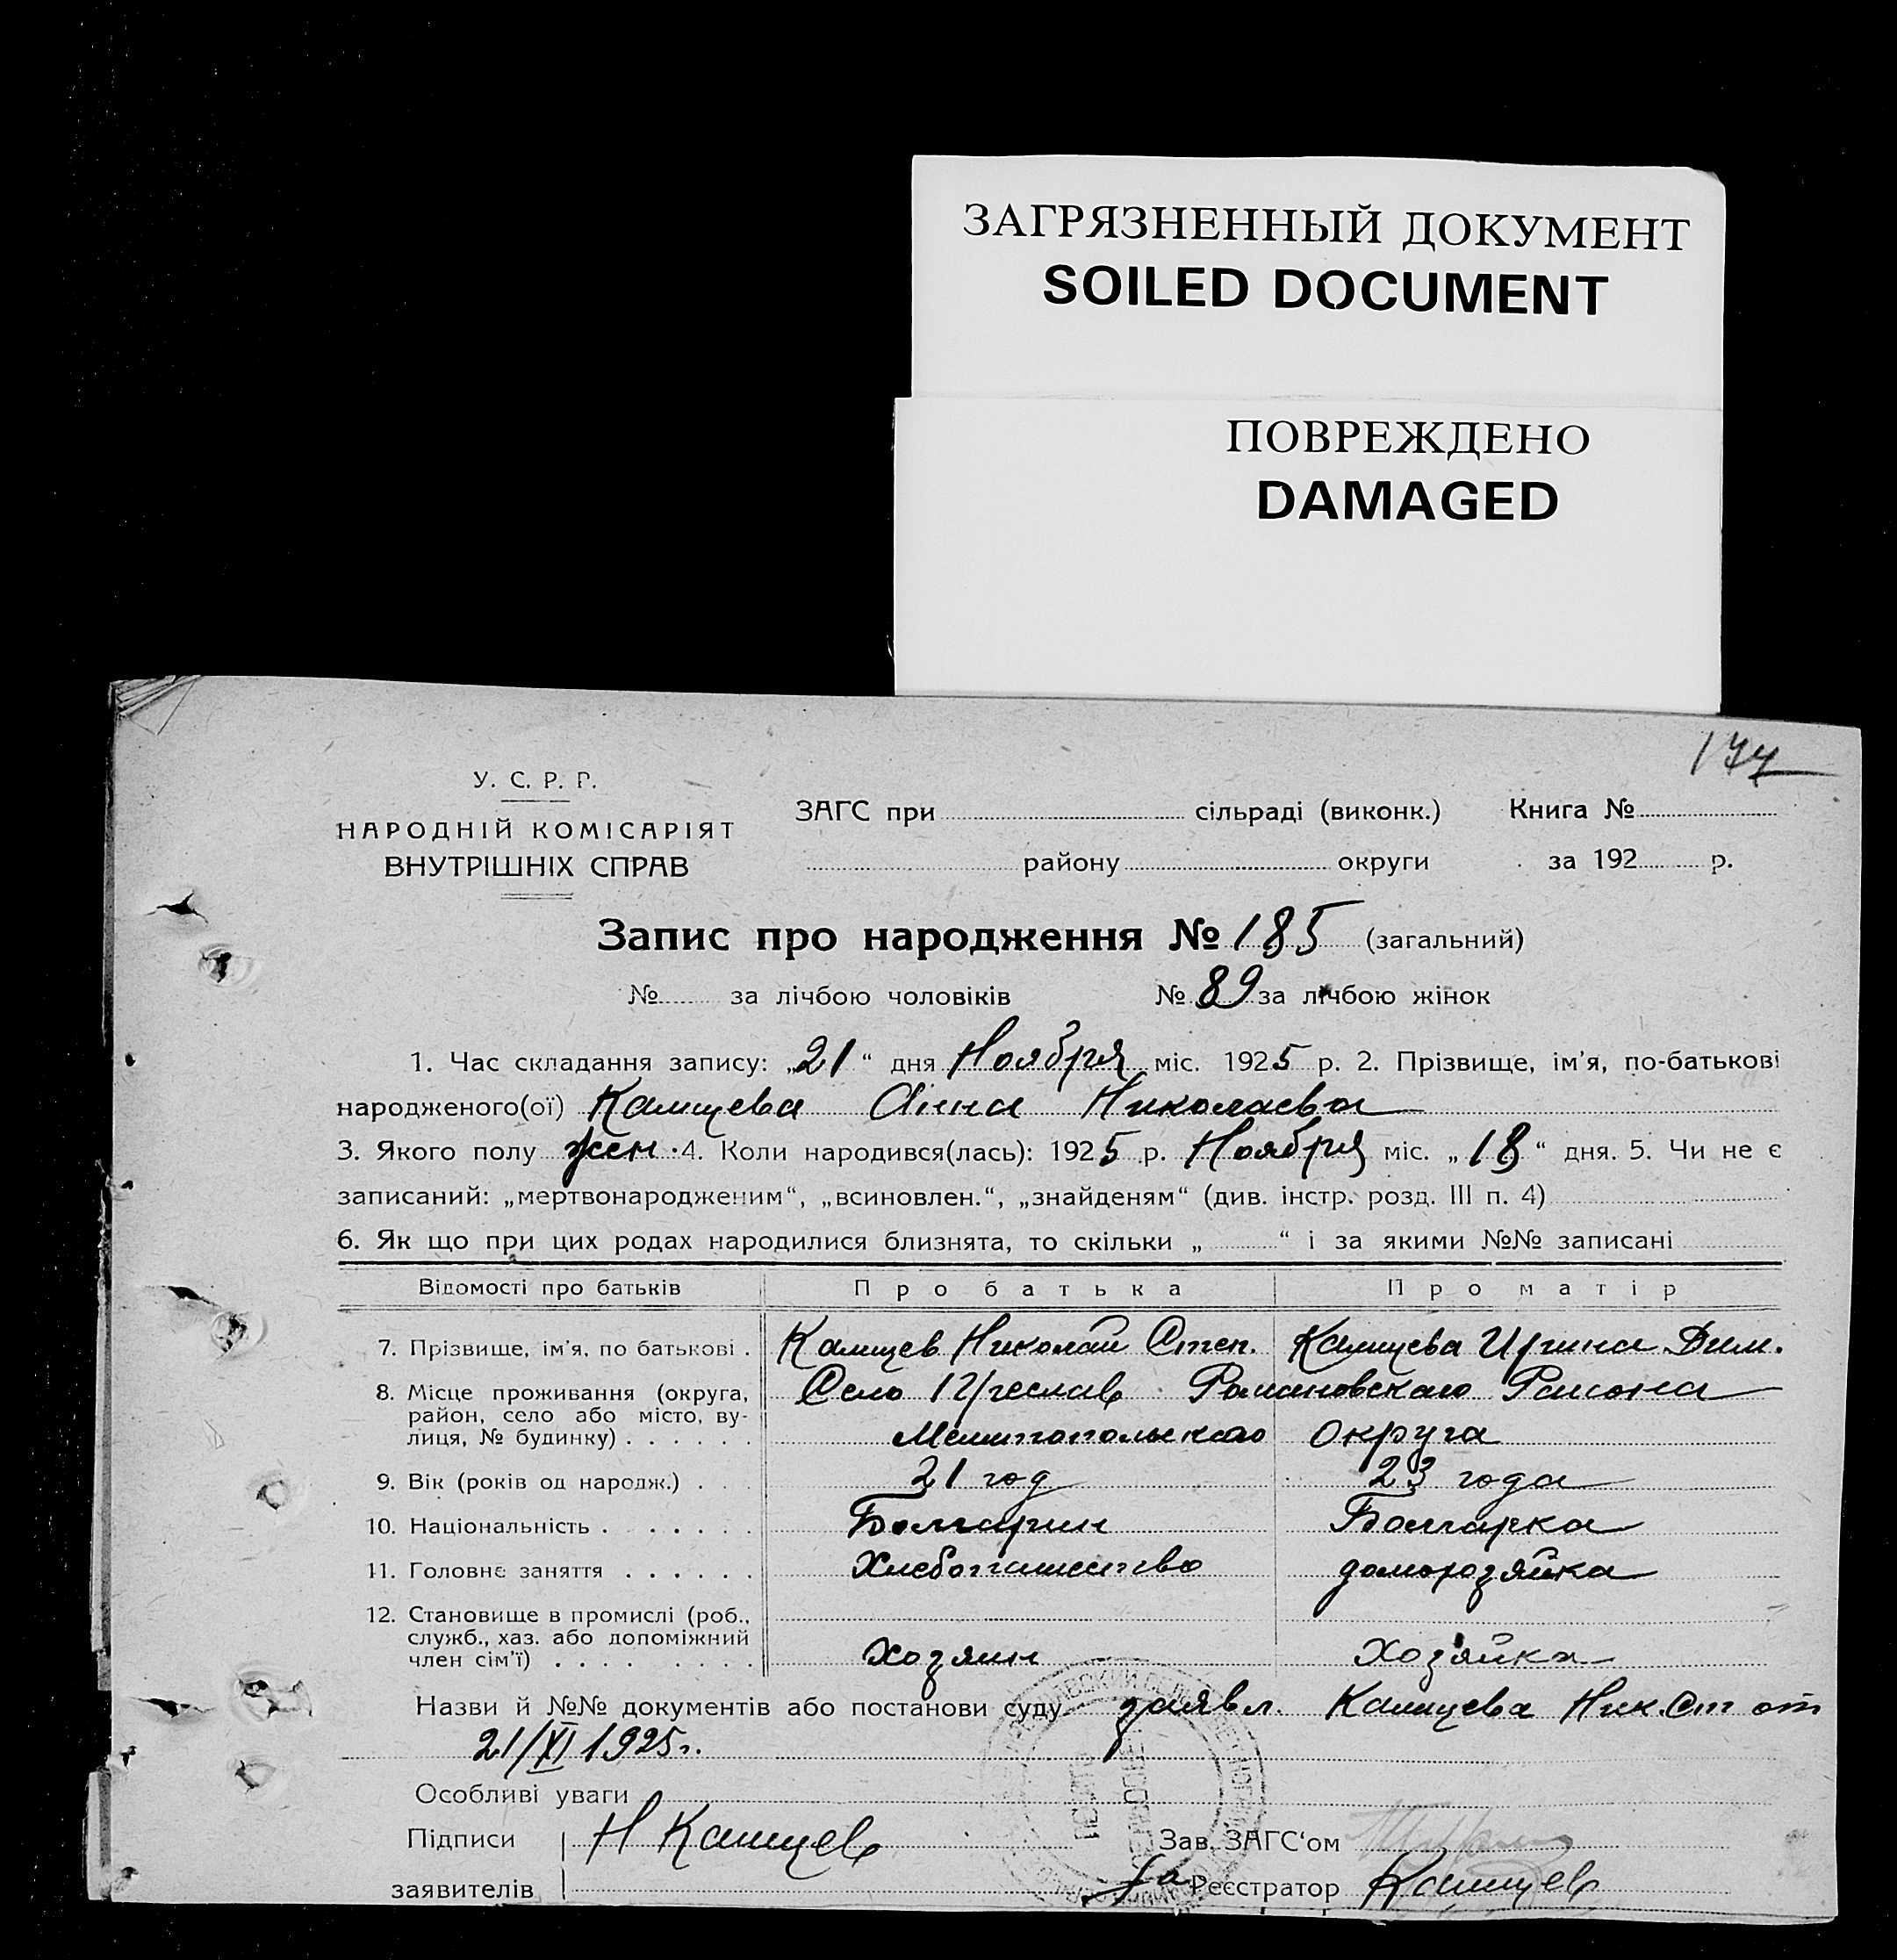 ЗАГРЯЗНЕННЫЙ ДОКУМЕНТ
SOILED DOCUMENT
ПОВРЕЖДЕНО
DAMAGED
177
У. С. Р. Р.
НАРОДНІЙ КОМІСАРІЯТ
ВНУТРІШНІХ СПРАВ
ЗАГС при сільраді (виконк.) Книга №
району округи за 192 р.
Запис про народження № 185 (загальний)
№ за лічбою чоловіків № 89 за лічбою жінок
1. Час складання запису: „21“ дня Ноября міс. 1925 р. 2. Прізвище, ім'я, по-батькові
народженого(ої) Камщева Анна Николаева
3. Якого полу жен. 4. Коли народився(лась): 1925 р. Ноября міс. „18“ дня. 5. Чи не є
записаний: „мертвонародженим“, „всиновлен.“, „знайденям“ (див. інстр. розд. III п. 4)
6. Як що при цих родах народилися близнята, то скільки „ “ і за якими №№ записані
Відомості про батьків Про батька Про матір
7. Прізвище, ім'я, по батькові . Камщев Николай Степ. Камщева Ирина Дим.
8. Місце проживання (округа, район, село або місто, вулиця, № будинку) . . . . . . Село Романовскаго Района
Мелитопольскаго Округа
9. Вік (років од народж.) . . . 21 год 23 года
10. Національність . . . . . . . Болгарин Болгарка
11. Головне заняття . . . . . . Хлебопашество домохозяйка
12. Становище в промислі (роб.,
служб., хаз. або допоміжний
член сім'ї) . . . . . . . . Хозяин Хозяйка
Назви й №№ документів або постанови суду заявл. Камщева Ник. Ст от
21/XI 1925г.
Особливі уваги
Підписи Н Камщев Зав. ЗАГС'ом
заявителів За Реєстратор Камщев